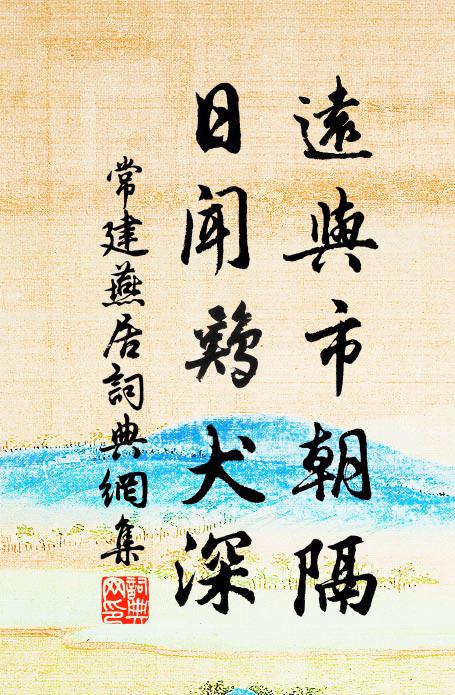 遠與市朝隔
日聞鷄犬深
常建燕居詞典網集
詞典网印